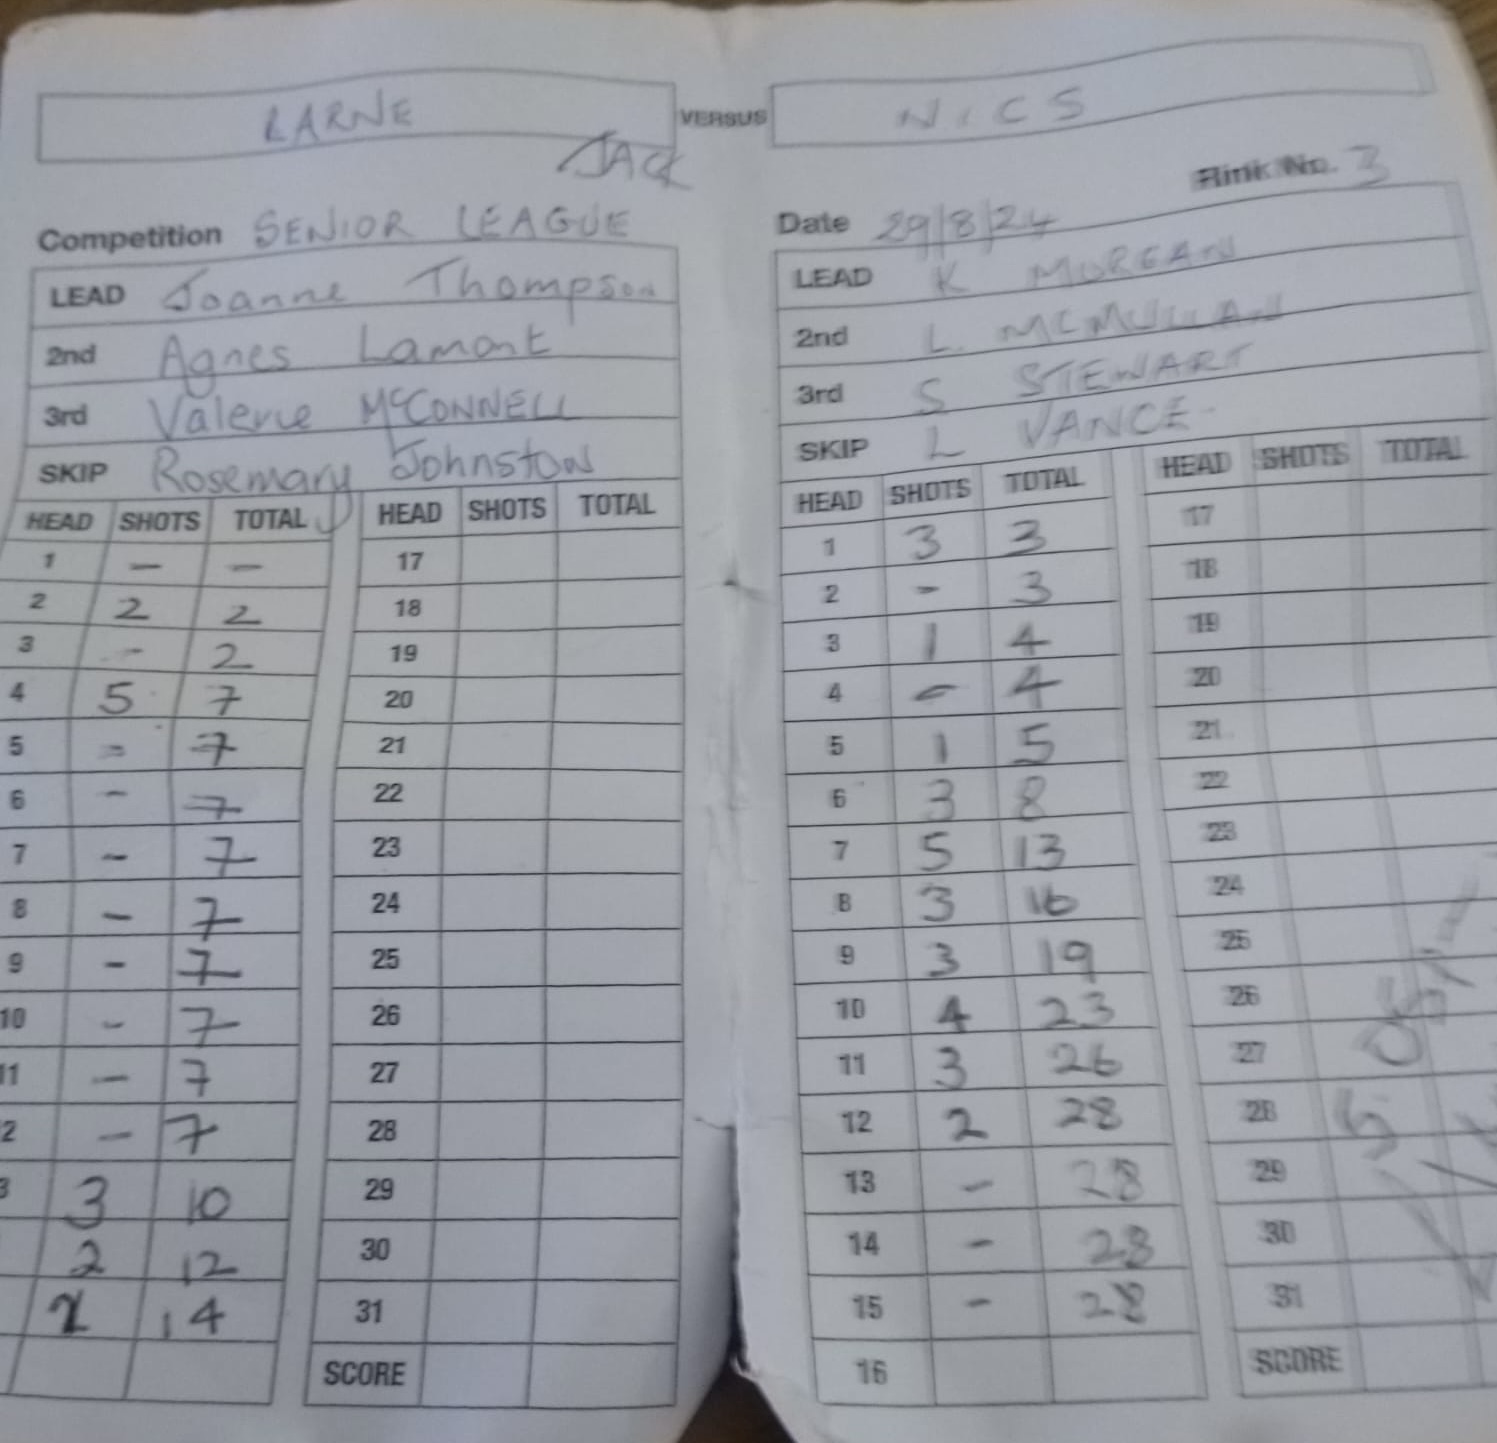 LARNE VERSUS N.I.C.S
JACK
Rink No. 3
Competition SENIOR LEAGUE
LEAD Joanne Thompson
2nd Agnes Lamont
3rd Valerie McCONNELL
SKIP Rosemary Johnston
HEAD SHOTS TOTAL HEAD SHOTS TOTAL
1 – – 17
2 2 2 18
3 - 2 19
4 5 7 20
5 - 7 21
6 - 7 22
7 - 7 23
8 - 7 24
9 - 7 25
10 - 7 26
11 - 7 27
2 - 7 28
3 3 10 29
2 12 30
2 14 31
SCORE
Date 29/8/24
LEAD K MORGAN
2nd L. MCMULLAN
3rd S STEWART
SKIP L VANCE
HEAD SHOTS TOTAL HEAD SHOTS TOTAL
1 3 3 17
2 - 3 18
3 1 4 19
4 - 4 20
5 1 5 21
6 3 8 22
7 5 13 23
8 3 16 24
9 3 19 25
10 4 23 26
11 3 26 27
12 2 28 28
13 - 28 29
14 - 28 30
15 - 28 31
16 SCORE